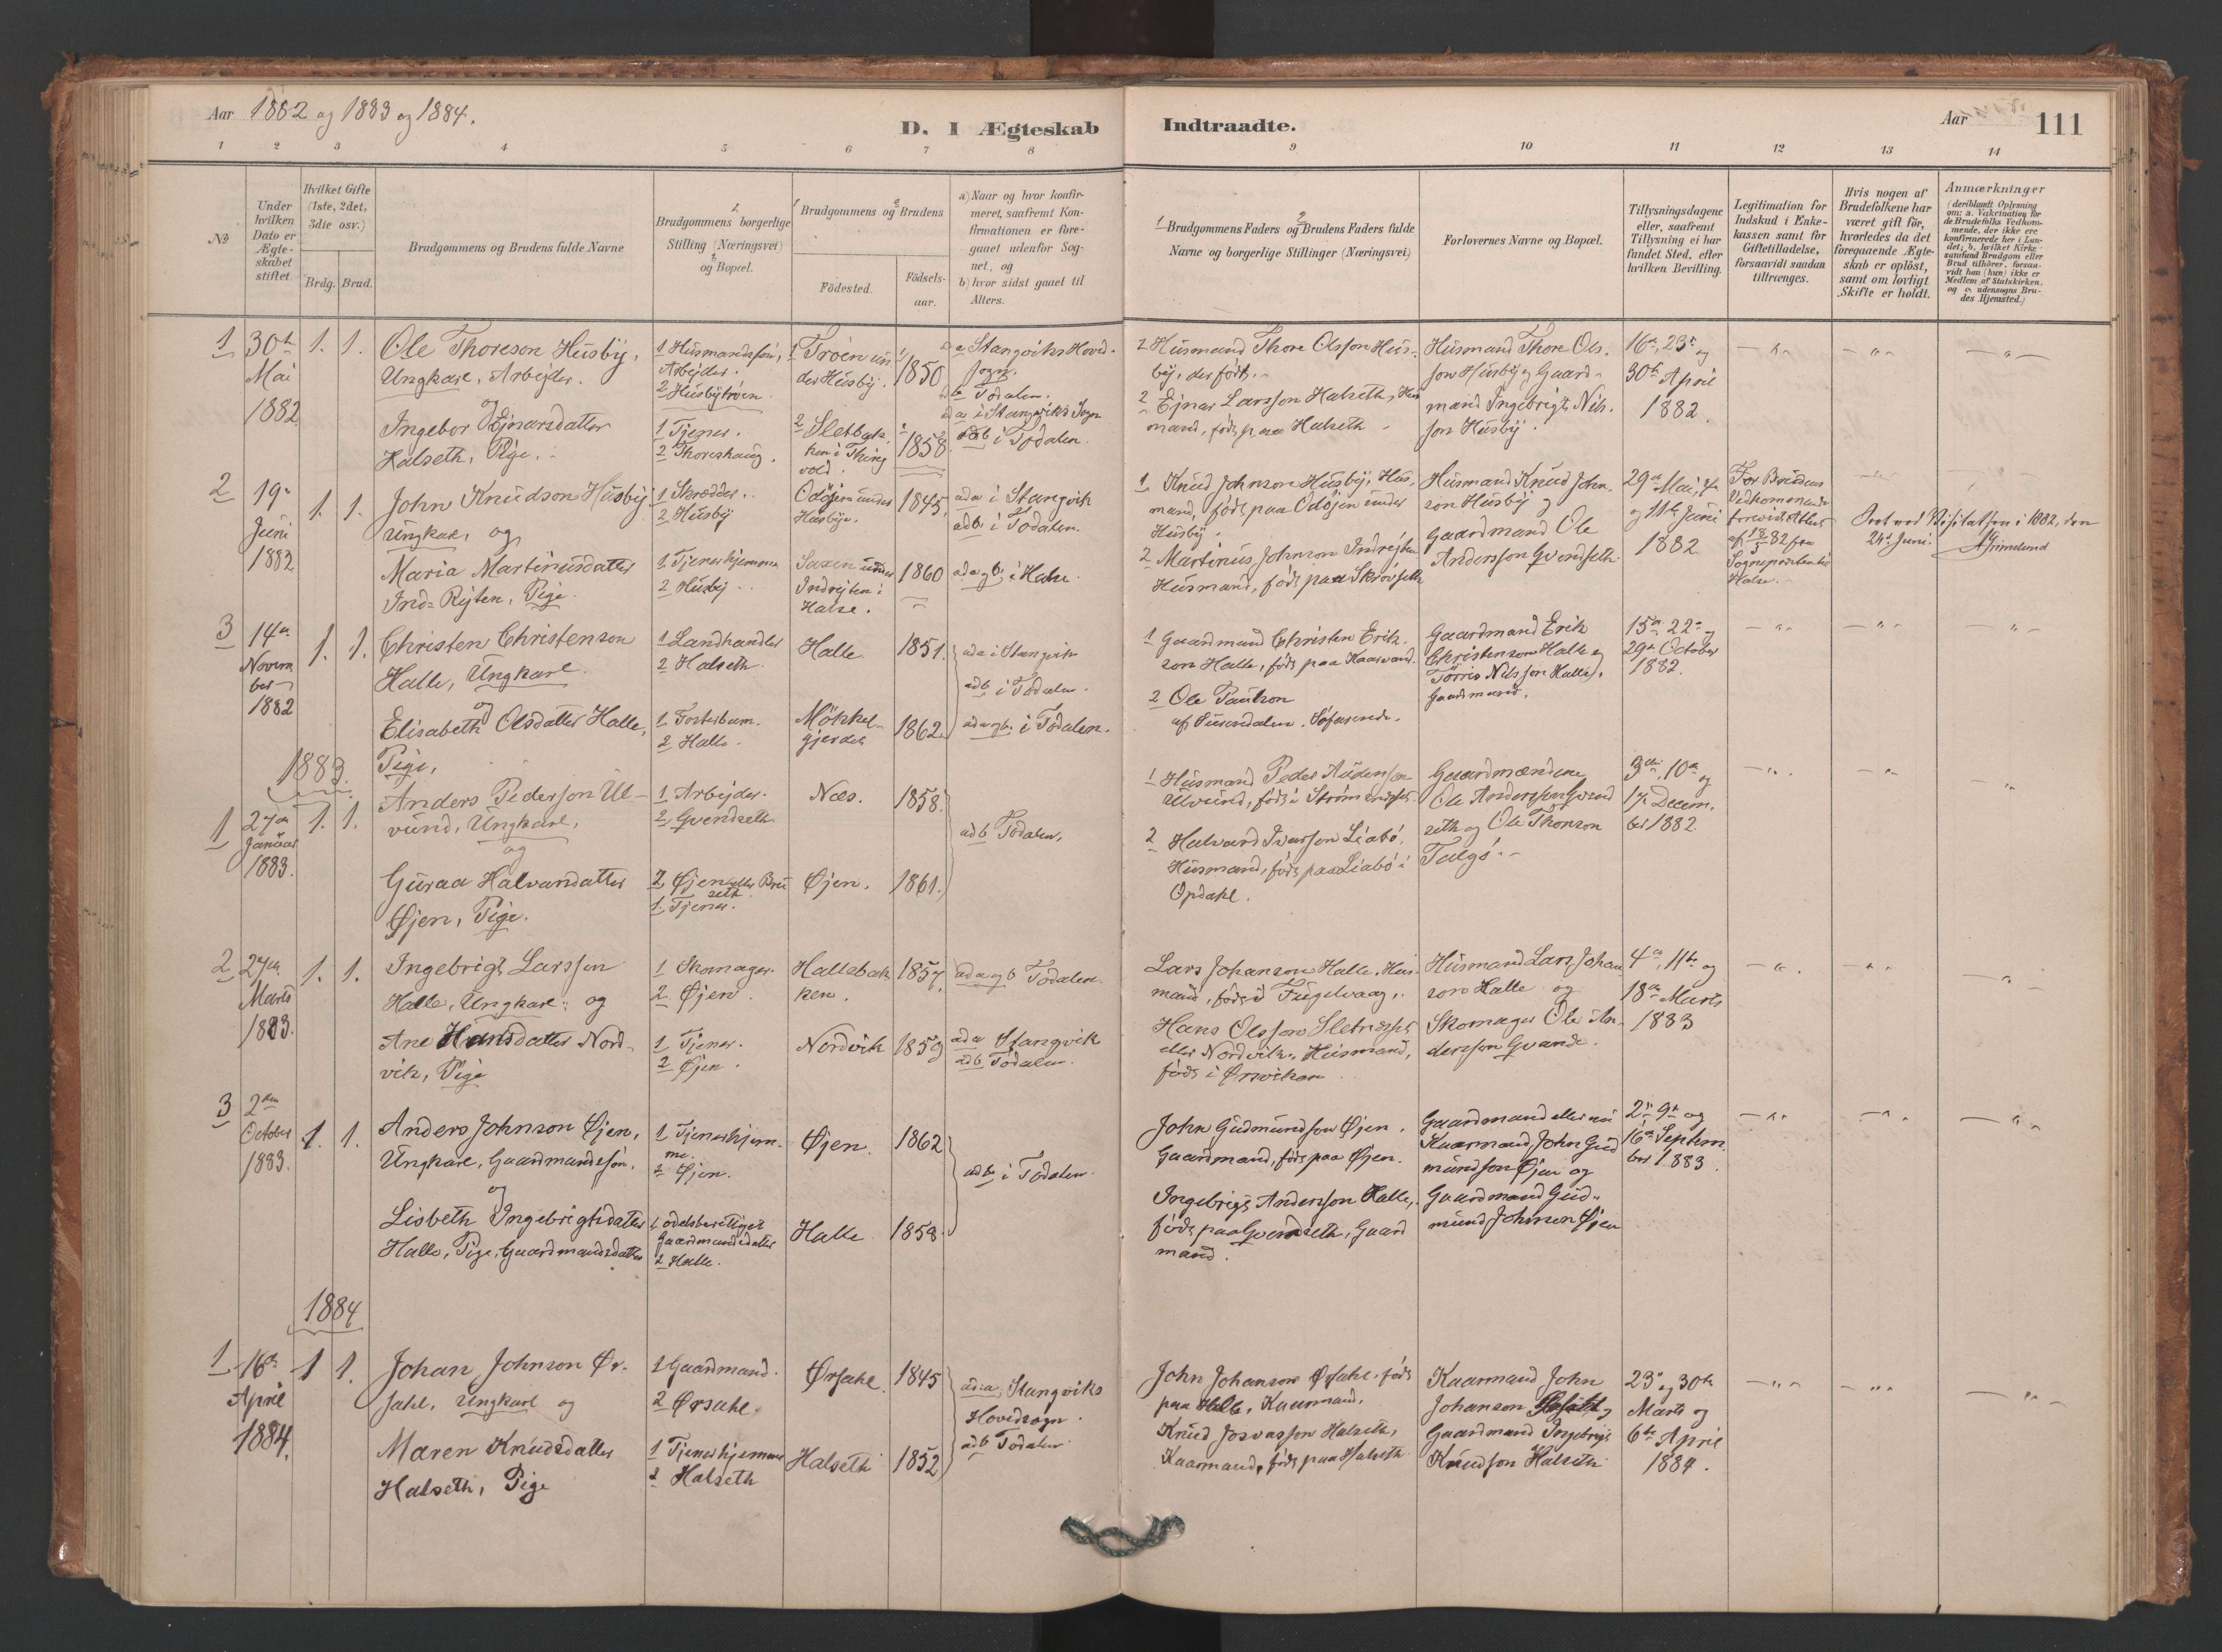 Aar 1882 og 1883 og 1884.
D. I Ægteskab
Indtraadte.
Aar
111
1 2 3 4 5 6 7 8
9 10 11 12 13 14
No
Under hvilken Dato er Ægteskabet stiftet.
Hvilket Gifte (1ste, 2det, 3die osv.)
Brdg. Brud.
Brudgommens og Brudens fulde Navne
Brudgommens borgerlige Stilling (Næringsvei) og Bopæl.
Brudgommens og Brudens
Födested.
Födsels-aar.
a) Naar og hvor konfirmeret, saafremt Konfirmationen er foregaaet udenfor Sognet, og
b) hvor sidst gaaet til Alters.
Brudgommens Faders og Brudens Faders fulde Navne og borgerlige Stillinger (Næringsvei)
Forlovernes Navne og Bopæl.
Tillysningsdagene eller, saafremt Tillysning ei har fundet Sted, efter hvilken Bevilling.
Legitimation for Indskud i Enkekassen samt for Giftetilladelse, forsaavidt saadan tiltrænges.
Hvis nogen af Brudefolkene har været gift för, hvorledes da det foregaaende Ægteskab er oplöst, samt om lovligt Skifte er holdt.
Anmærkninger
(deriblandt Oplysning om: a. Vakcination for de Brudefolks Vedkommende, der ikke ere konfirmerede her i Landet; b. hvilket Kirkesamfund Brudgom eller Brud tilhörer, forsaavidt han (hun) ikke er Medlem af Statskirken, og c. udensogns Brudes Hjemsted.)
1 30te Mai 1882 1. 1.
Ole Thoreson Husby,
Ungkarl, Arbejder.
og
Ingebor Ejnarsdatter
Halseth, Pige.
1 Husmandssøn, Arbejder.
2 Husbytrøen.
1 Tjener.
2 Thoreshaug.
1 Trøen under Husby.
1850
2 Sletbakken i Thingvold.
1858
a Stangviks Hovedsogn.
b Todalen.
a i Stangviks Sogn
b i Todalen.
Husmand Thore Olsson Husby, der født.
2 Ejnar Larsson Halseth, Husmand, født paa Halseth
Husmand Thore Olsson Husby og Gaardmand Ingebrigt Nilsson Husby.
16de, 23de og
30te April
1882.
2 19de Juni 1882 1. 1.
John Knudson Husby
Ungkarl, og
Maria Martinusdatter
Ind-Rejten, Pige.
1 Skrædder.
2 Husby
1 Tjener hjemme
2 Husby
Odøjen under Husbye.
1845.
Saxen under Indrejten i Halse.
1860
ad a i Stangvik
ad b. i Todalen.
ad a og b. i Halse.
1 Knud Johnson Husby, Husmand, født paa Odøjen under Husby.
2 Martinus Johnson Indrejten
Husmand, født paa Skrøvseth
Husmand Knud Johnson Husby og
Gaardmand Ole Andersson Qvendseth
29de Mai, 4de
og 11te Juni
1882.
For Brudens Vedkommende forevist Attest af 18/5 82 fra Sognepræsten til Halse.
Seet ved Visitatsen i 1882, den 24de Juni.
Grimelund
3 14de November 1882 1. 1.
Christen Christenson
Halle, Ungkarl.
og
Elisabeth Olsdatter Halle,
Pige,
1 Landhandler
2 Halseth.
1 Fosterbarn.
2 Halle.
Halle. 1851.
Møkkelgjerdet 1862.
ad a i Stangvik
ad b i Todalen.
ad a og b. i Todalen.
1 Gaardmand Christen Erikson Halle, født paa Kaarvand.
2 Ole Paulson
af Surendalen. Søfarende.
Gaardmand Erik Christenson Halle og
Tørris Nilsson Halle,
Gaardmand.
15de 22de og
29de October
1882.
1883.
1 27de Januar 1883. 1. 1.
Anders Pederson Ulvund, Ungkarl,
og
Guraa Halvarsdatter
Øjen, Pige.
1 Arbejder.
2 Qvendseth.
2 Øjen eller Bruseth.
1 Tjener.
Næs. 1858.
Øjen. 1861.
ad b Todalen.
1 Husmand Peder Audenson
Ulvund, født i Strømsnesset.
2 Halvard Ivarsson Liabø,
Husmand, født paa Liabø i
Opdahl.
Gaardmændene
Ole Andersson Qvendseth og Ole Thorson
Talgø.
3die, 10de og
17de December 1882.
2 27de Marts 1883. 1. 1.
Ingebrigt Larsson
Halle, Ungkarl og
Ane Hansdatter Nordvik, Pige
1 Skomager.
2 Øjen.
1 Tjener.
2 Øjen.
Hallebakken. 1857.
Nordvik 1859
ad a og b Todalen.
ad a Stangvik
ad b Todalen.
Lars Johanson Halle, Husmand, født i Fugelvaag.
Hans Olsson Sletnesset
eller Nordvik, Husmand,
født i Ørsviken.
Husmand Lars Johanson Halle og
Skomager Ole Andersson Qvande.
4de, 11te og
18de Marts
1883
3 2den October 1883. 1. 1.
Anders Johnson Øjen,
Ungkarl, Gaardmandssøn.
og
Lisbeth Ingebrigtsdatter
Halle, Pige, Gaardmandsdatter
1 Tjener hjemme.
2 Øjen.
1 odelsberettiget Gaardmandsdatter
2 Halle.
Øjen. 1862
Halle. 1858.
ad b. i Todalen.
John Gudmundson Øjen,
Gaardmand, født paa Øjen.
Ingebrigt Andersson Halle,
født paa Qvendseth, Gaardmand.
Gaardmand eller nu
Kaarmand John Gudmundson Øjen og
Gaardmand Gudmund Johnson Øjen
2den 9de og
16de September 1883.
1884
1 16de April 1884. 1 1.
Johan Johnson Ørsahl, Ungkarl og
Maren Knudsdatter
Halseth, Pige
1 Gaardmand.
2 Ørsahl.
1 Tjener hjemme
2 Halseth
Ørsahl. 1845
Halseth 1852
ad: a, Stangviks
Hovedsogn.
ad b Todalen.
John Johanson Ørsahl, født
paa Halle, Kaarmand.
Knud Josvasson Halseth,
Kaarmand, født paa Halseth
Kaarmand John
Johanson og
Gaardmand Ingebrigt
Knudson Halseth
23de og 30te
Marts og
6te April
1884.